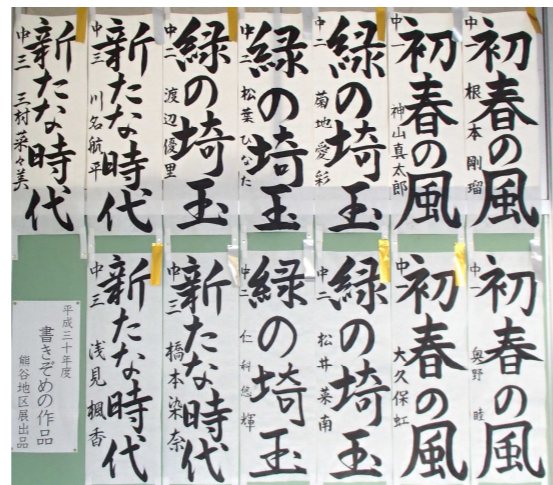 初春の風
中一 根本剛瑠
初春の風
中一 神山真太郎
緑の埼玉
中二 菊地愛彩
緑の埼玉
中二 松葉ひなた
緑の埼玉
中二 渡辺優里
新たな時代
中三 川名航平
新たな時代
中三 三村菜々美
初春の風
中一 奥野睦
初春の風
中一 大久保虹
緑の埼玉
中二 松井菜南
緑の埼玉
中二 仁科悠輝
新たな時代
中三 橋本染奈
新たな時代
中三 浅見楓香
平成三十年度
書きぞめの作品
熊谷地区展出品